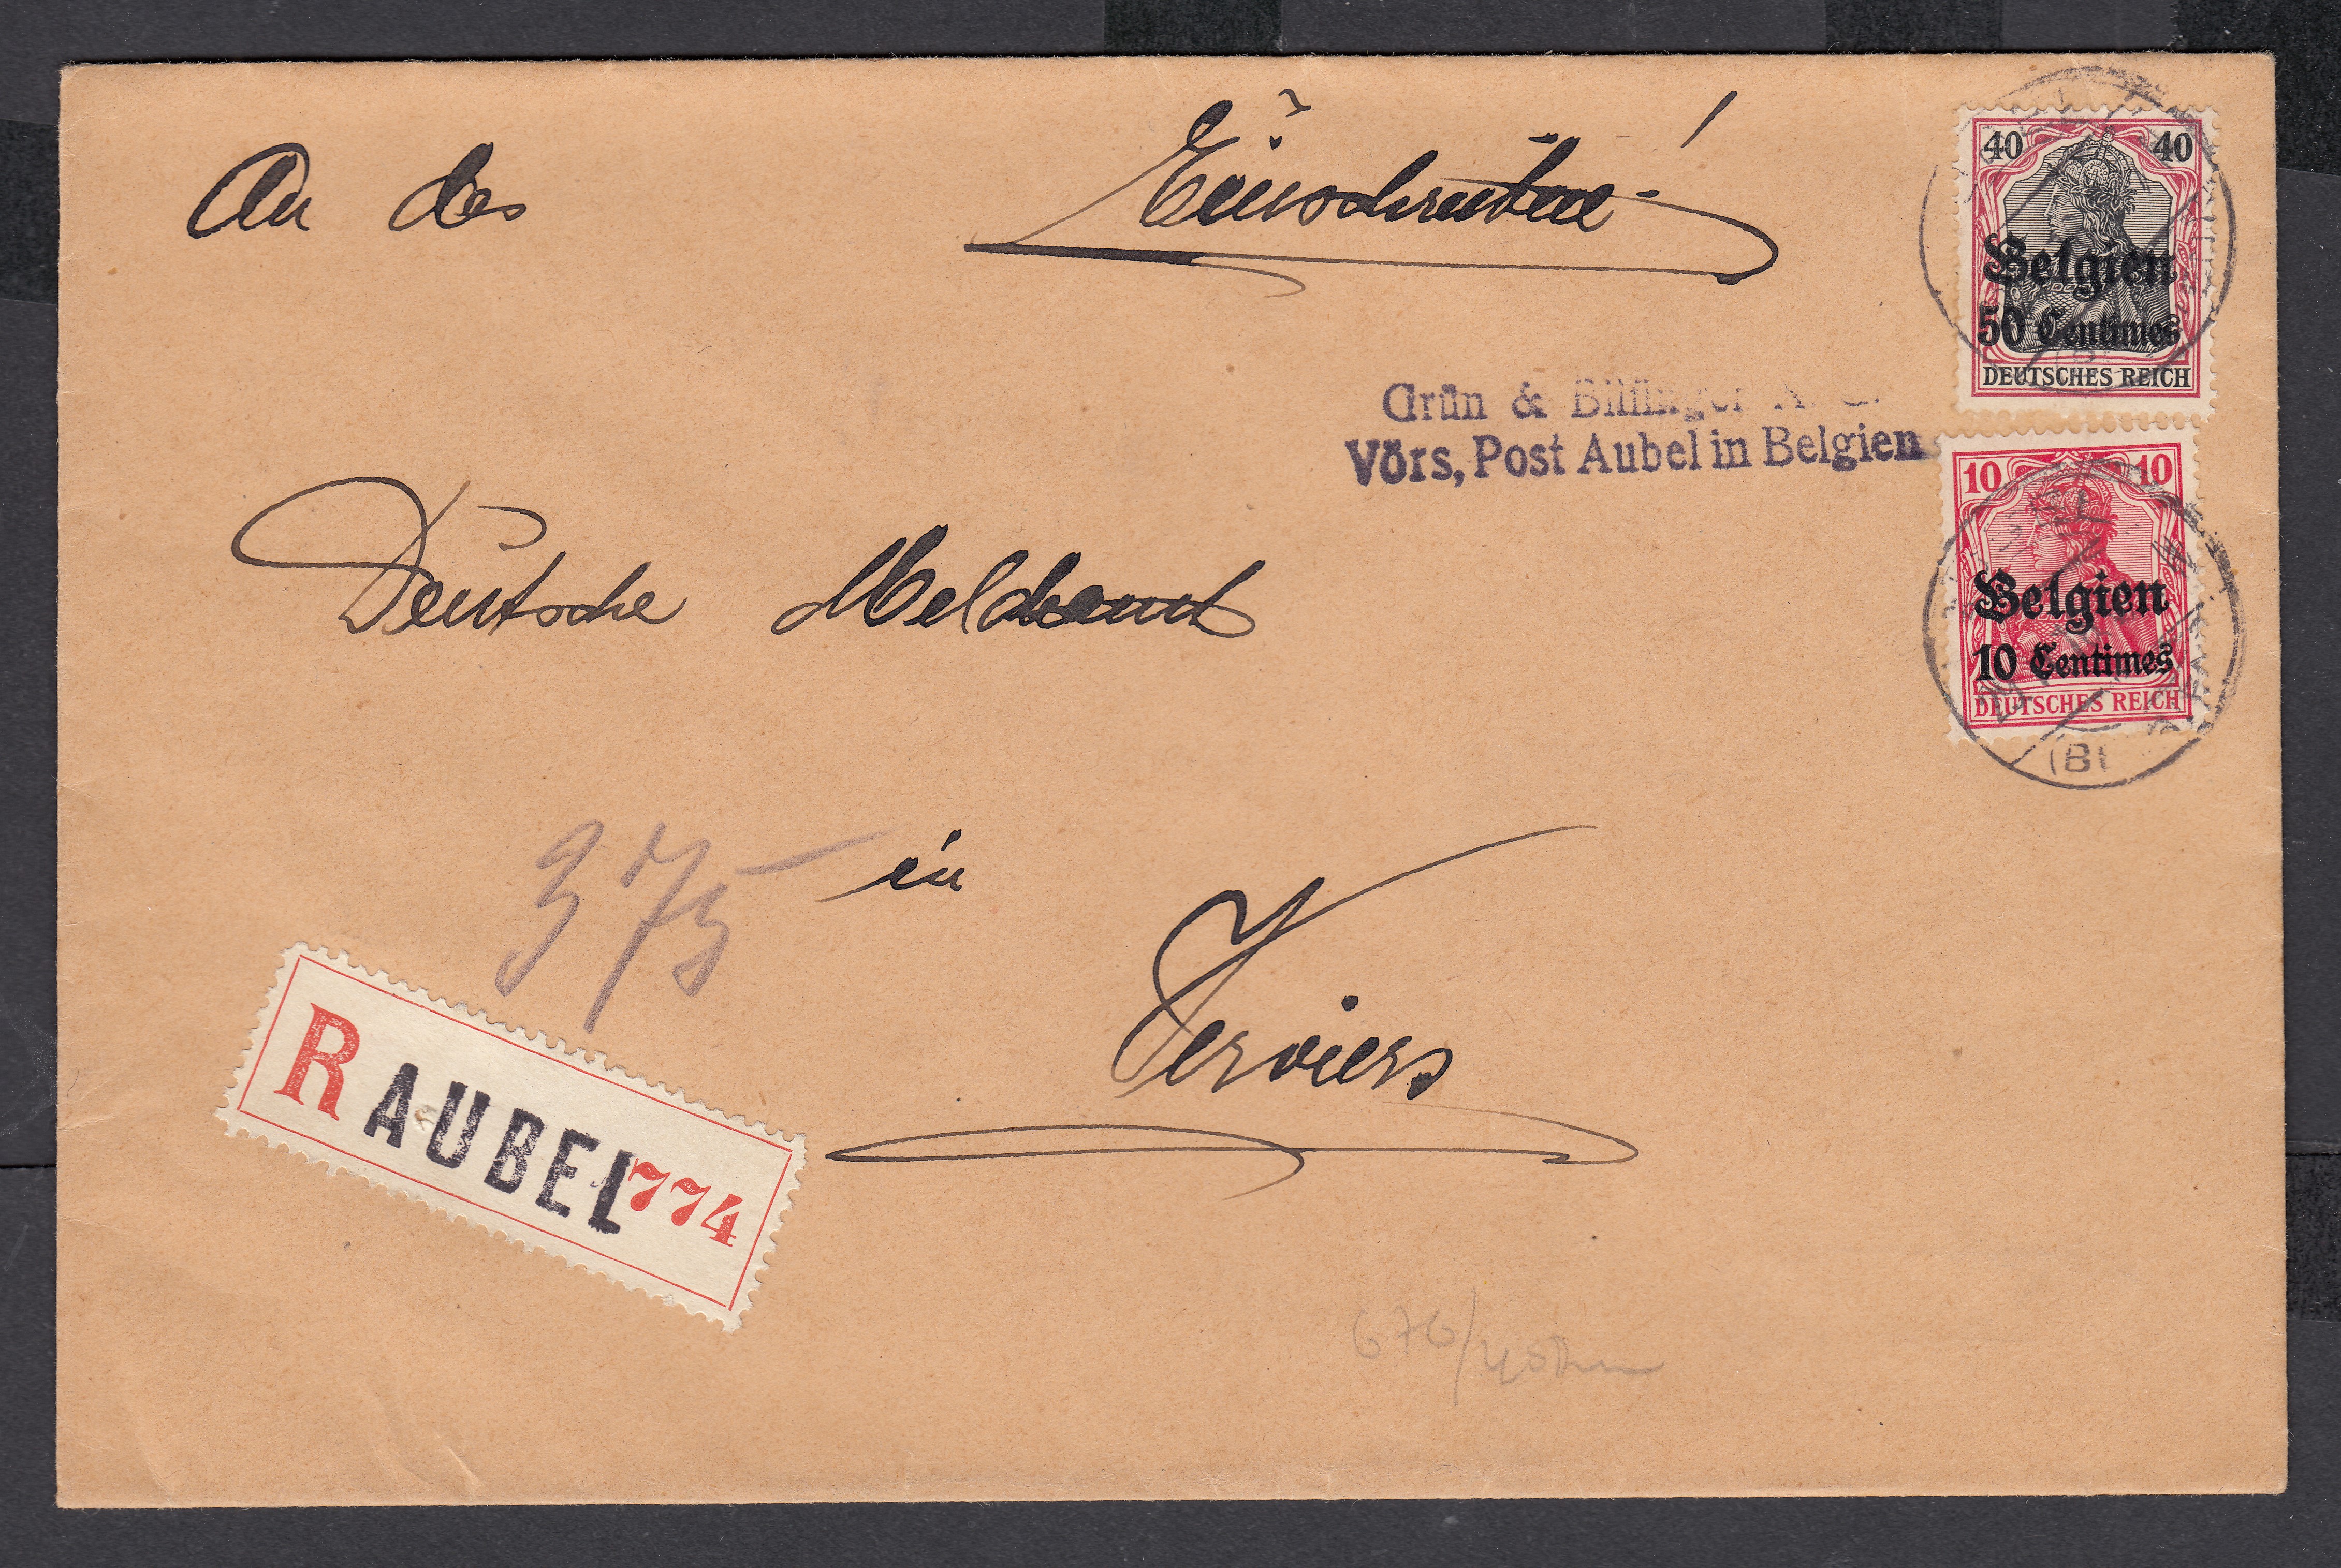 An das
Einschreiben!
40 40
Belgien
50 Centimes
DEUTSCHES REICH
Grün & Bilfinger A. G.
Vörs, Post Aubel in Belgien
10 10
Belgien
10 Centimes
DEUTSCHES REICH
Deutsche Meldeamt
375
in
Verviers
R AUBEL 774
676/